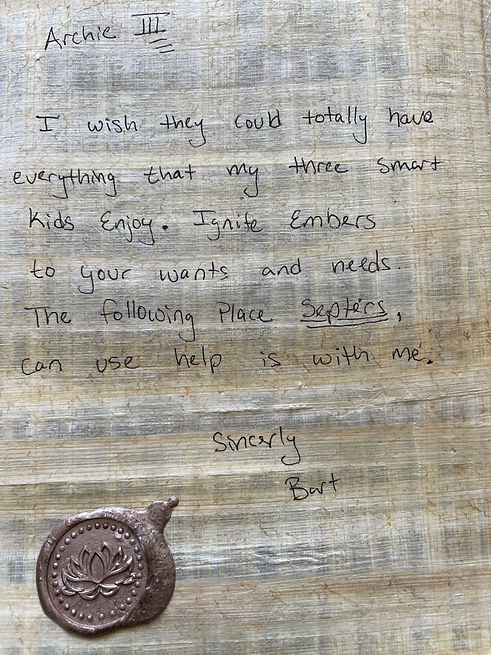 Archie III
I wish they could totally have
everything that my three smart
Kids Enjoy. Ignite Embers
to your wants and needs.
The following Place Septers,
can use help is with me.
Sincerly
Bart